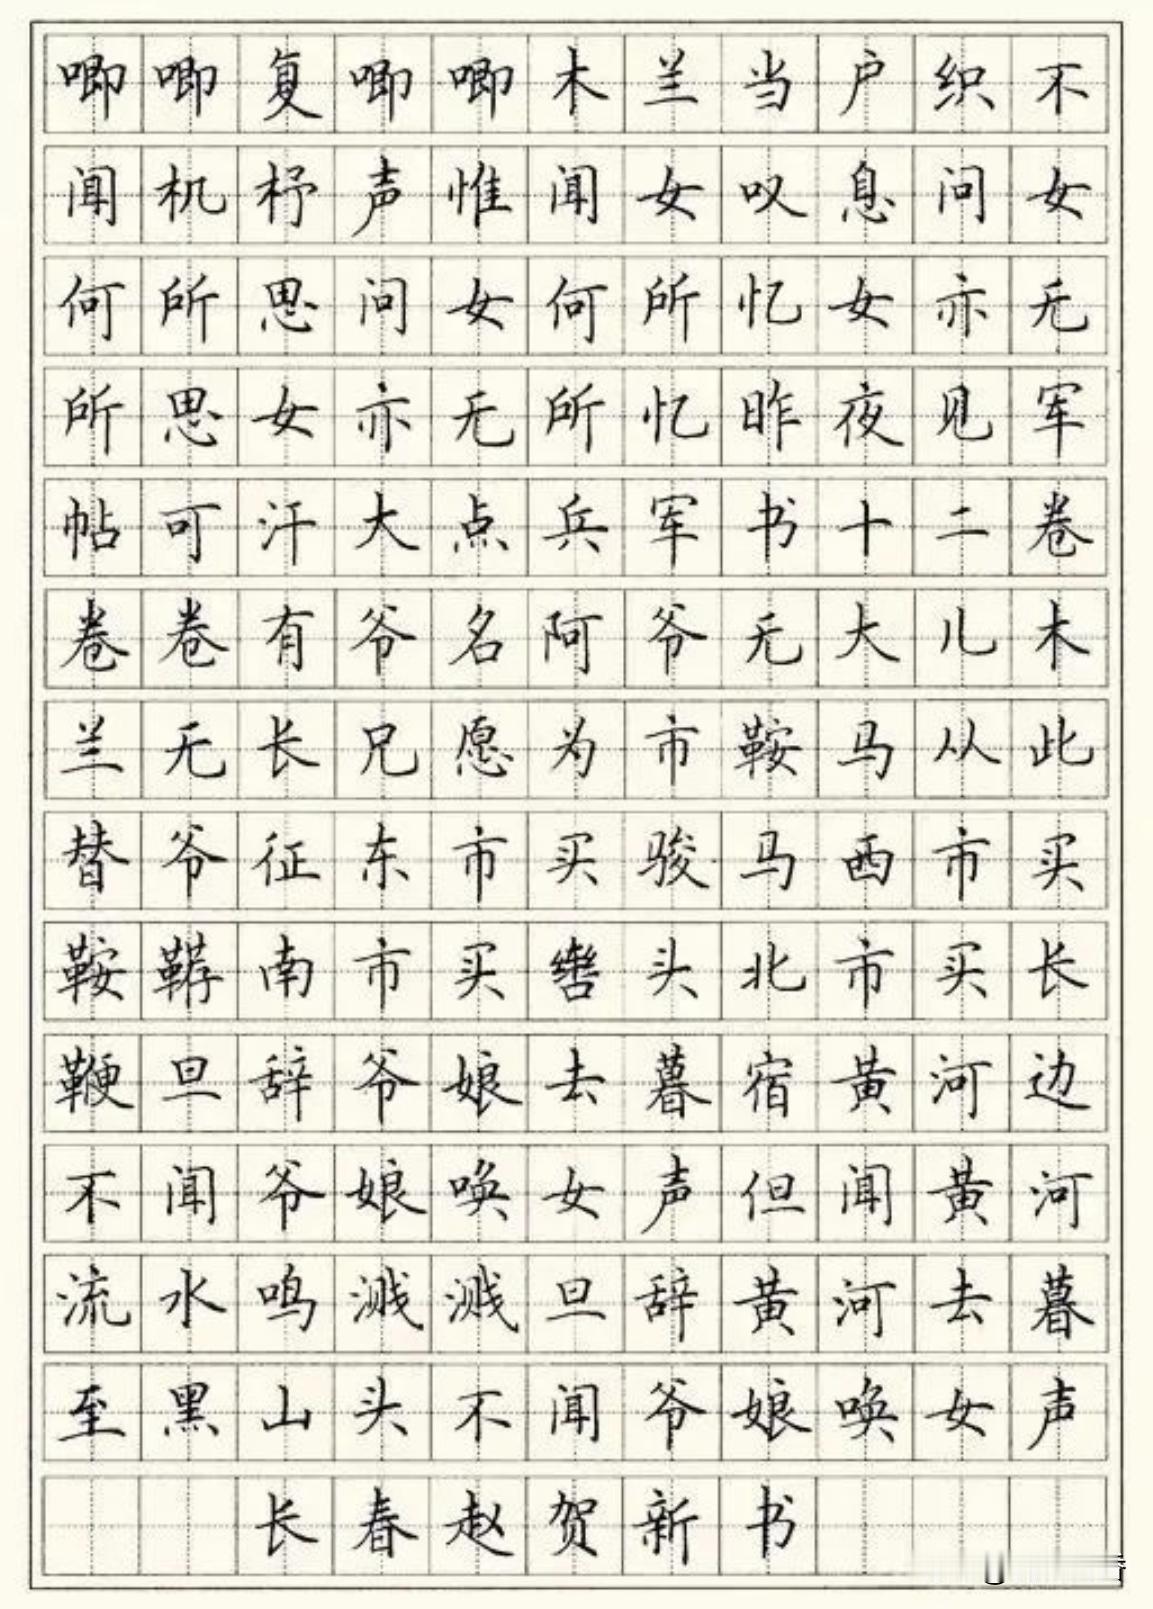 唧唧复唧唧木兰当户织不
闻机杼声惟闻女叹息问女
何所思问女何所忆女亦无
所思女亦无所忆昨夜见军
帖可汗大点兵军书十二卷
卷卷有爷名阿爷无大儿木
兰无长兄愿为市鞍马从此
替爷征东市买骏马西市买
鞍鞯南市买辔头北市买长
鞭旦辞爷娘去暮宿黄河边
不闻爷娘唤女声但闻黄河
流水鸣溅溅旦辞黄河去暮
至黑山头不闻爷娘唤女声
长春赵贺新书